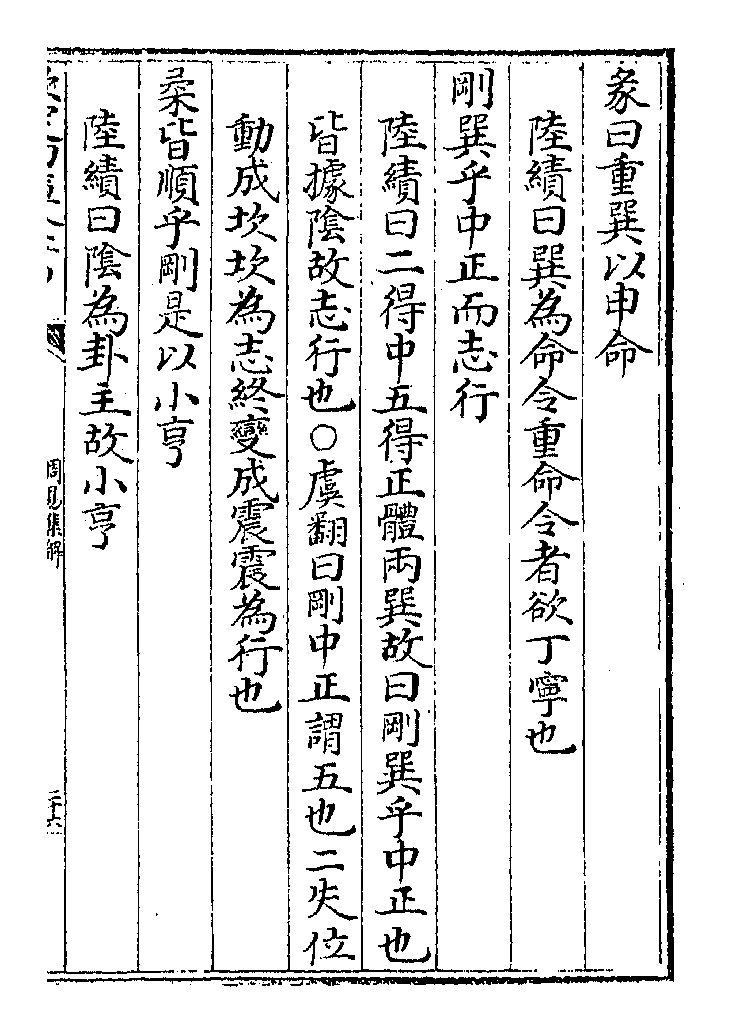 彖曰重巽以申命
陸績曰巽為命令重命令者欲丁寧也
剛巽乎中正而志行
陸績曰二得中五得正體兩巽故曰剛巽乎中正也
皆據陰故志行也○虞翻曰剛中正謂五也二失位
動成坎坎為志終變成震震為行也
柔皆順乎剛是以小亨
陸績曰陰為卦主故小亨
周易集解
二十六